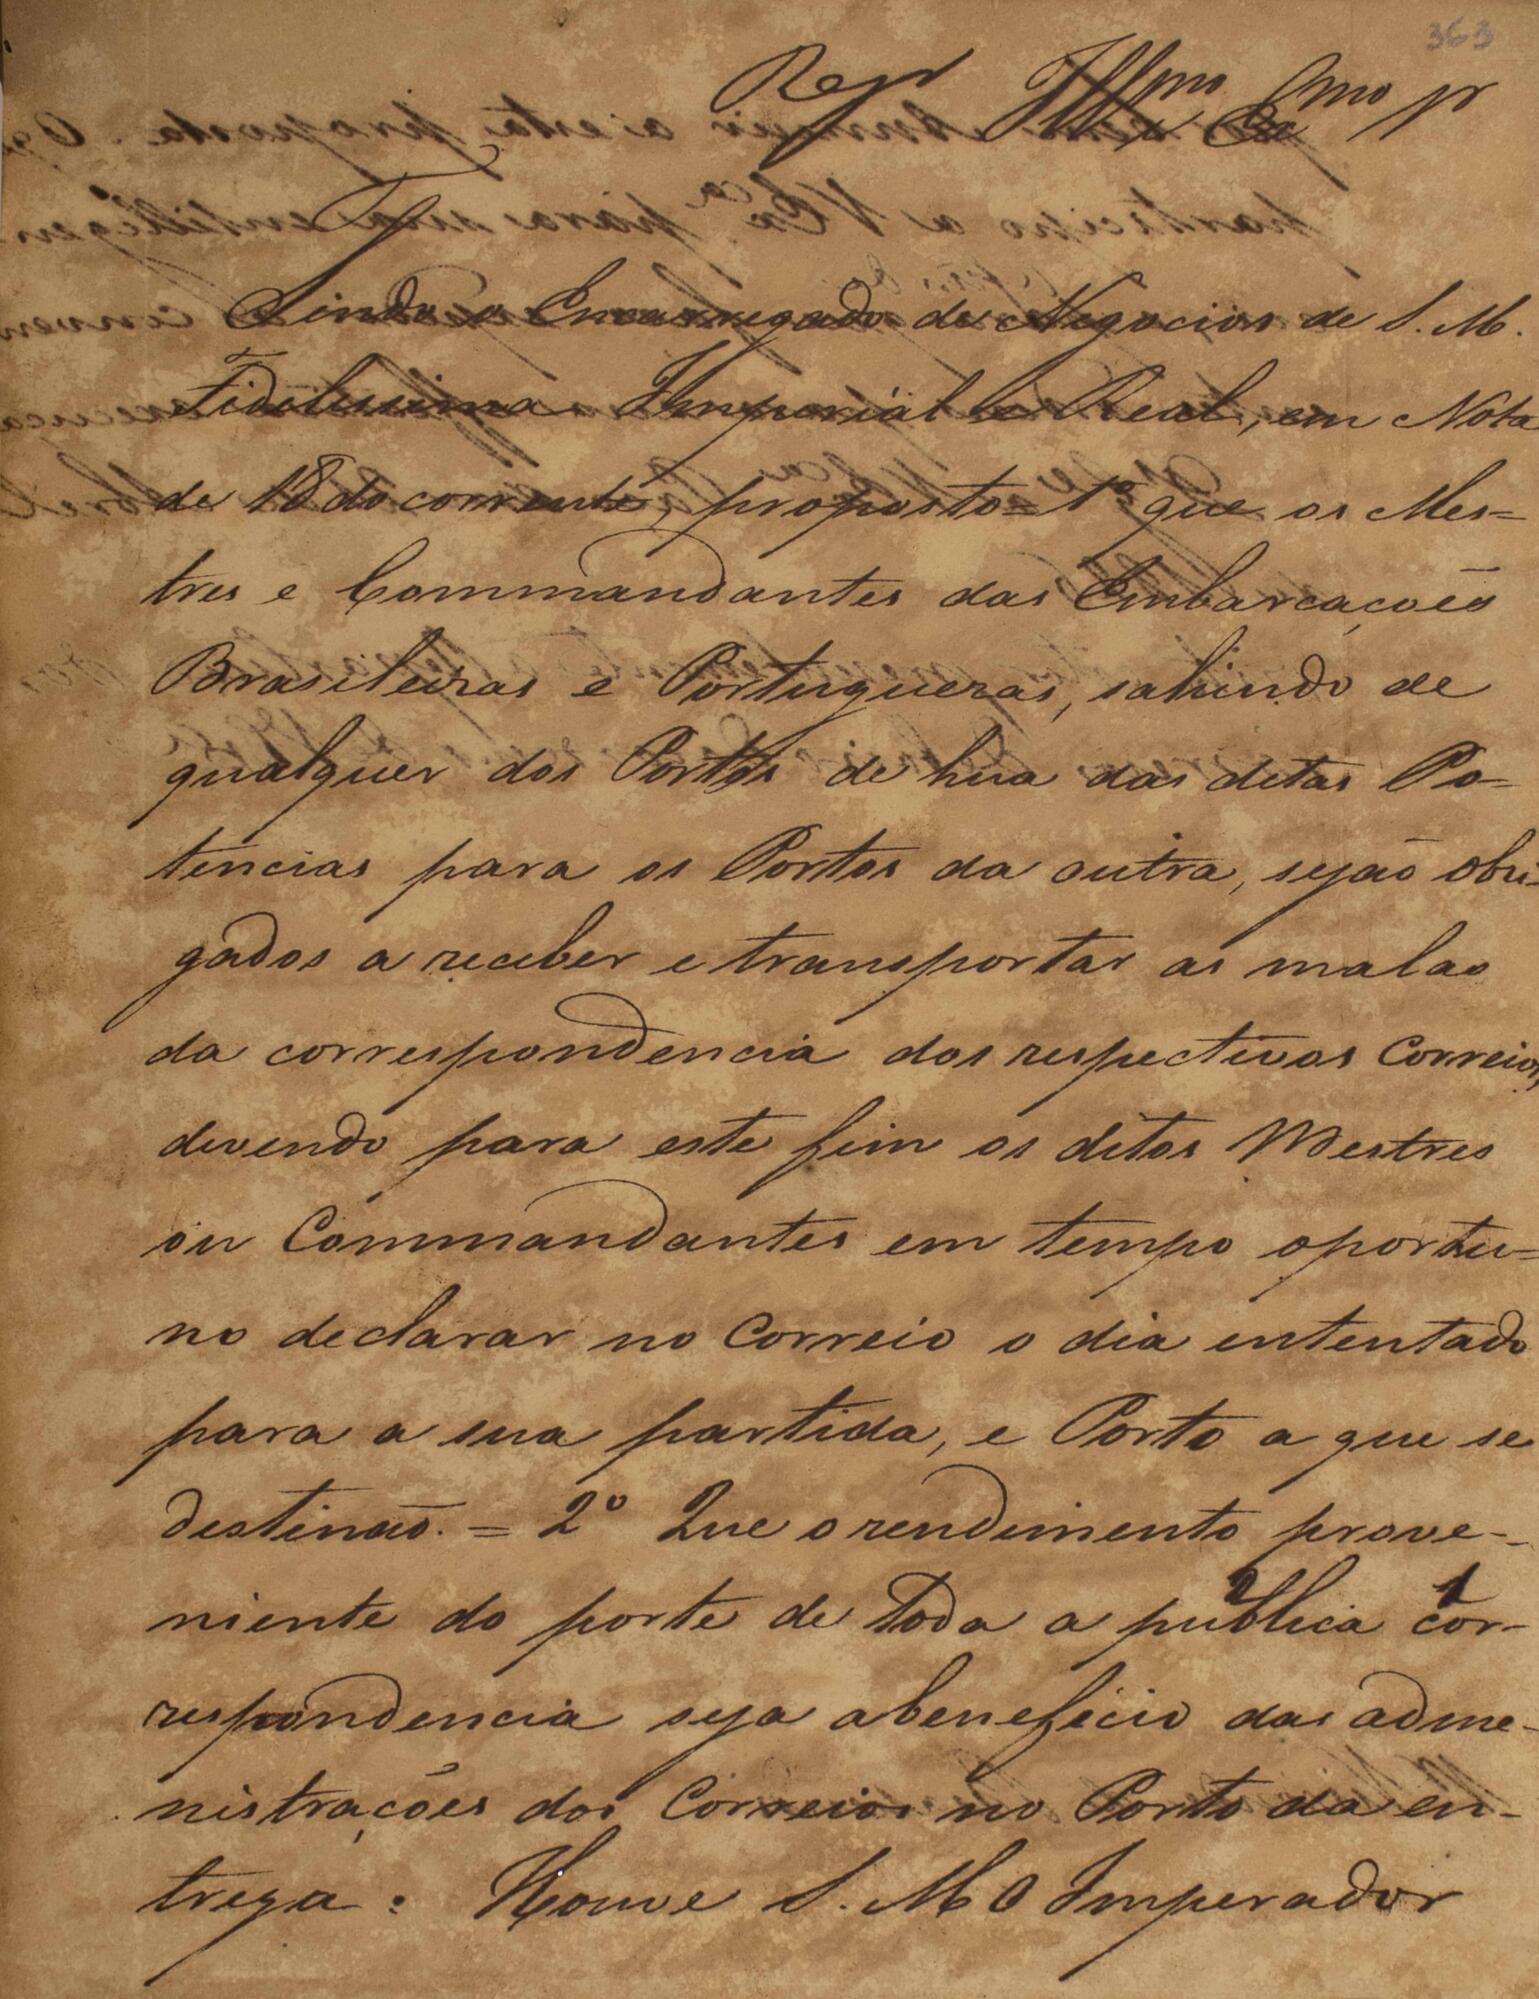 363
Illmo Exmo Sr
Tendo o Encarregado de Negocios de S. M.
Fidelissima Imperial e Real, em Nota
de 18 do corrente, proposto = 1º que os Mes=
tres e Commandantes das Embarcaçoēs
Brasileiras e Portuguezas, sahindo de
qualquer dos Portos de hua das ditas Po=
tencias para os Portos da outra, sejão obri-
gados a receber e transportar as malas
da correspondencia dos respectivos Correios,
devendo para este fim os ditos Mestres
ou Commandantes em tempo oportu=
no declarar no Correio o dia ententado
para a sua partida, e Porto a que se
destinaō. = 2º Que o rendimento prove-
niente do porte de toda a publica 2 cor- 1
respondencia seja a beneficio das adme-
nistrações dos Correios no Porto da en-
trega: Houve S. M. O Imperador